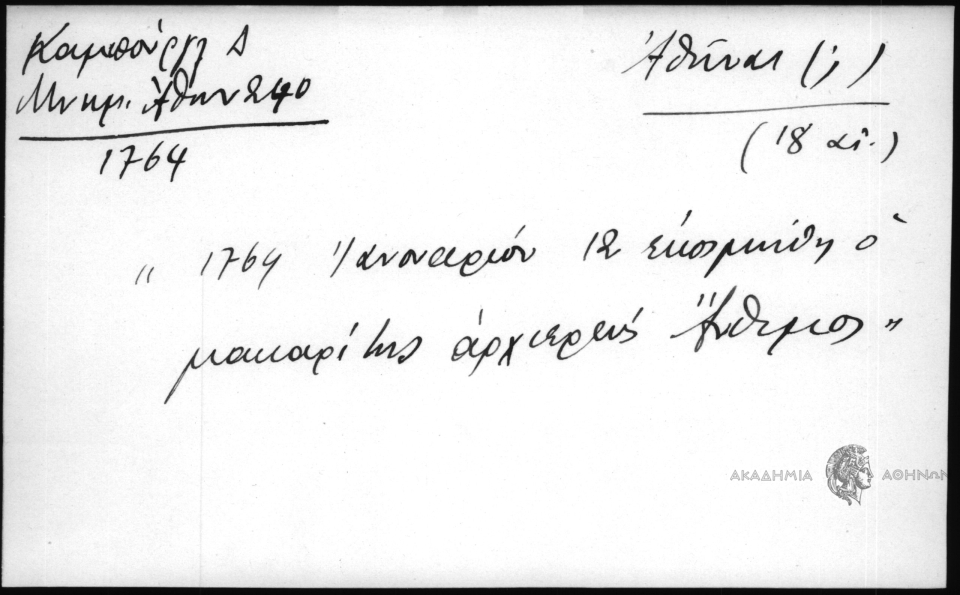 Καμπούργλ Δ
Μνημ. Ἀθην 240
1764
Ἀθῆναι (;)
(18 αἰ.)
" 1764 Ἰαννουαρίου 12 ἐκοιμήθη ὁ
μακαρίτης ἀρχιερεὺς Ἄνθιμος "
ΑΚΑΔΗΜΙΑ ΑΘΗΝΩΝ